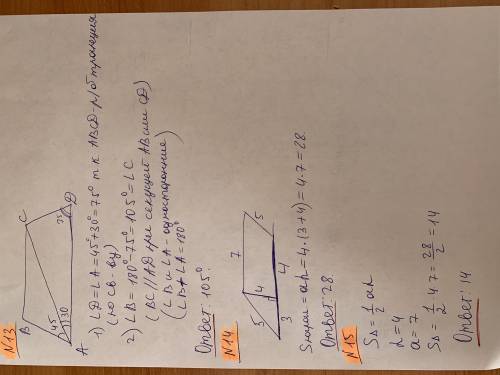 N13
B
C
45
30
75
A
D
1) ∠D = ∠A = 45° + 30° = 75° т.к ABCD - р/б трапеция
(по св ву)
2) ∠B = 180° 75° = 105° = ∠C
(BC // AD при секущей AB или CD)
(∠B и ∠A - односторонние
∠B + ∠A = 180°)
Ответ: 105°.
N14
5
7
4
5
3
4
Sпарал = ah = 4·(3+4) = 4·7 = 28
Ответ: 28.
N15
S△ = 1/2 ah
h = 4
a = 7
S△ = 1/2 4 7 = 28/2 = 14
Ответ: 14